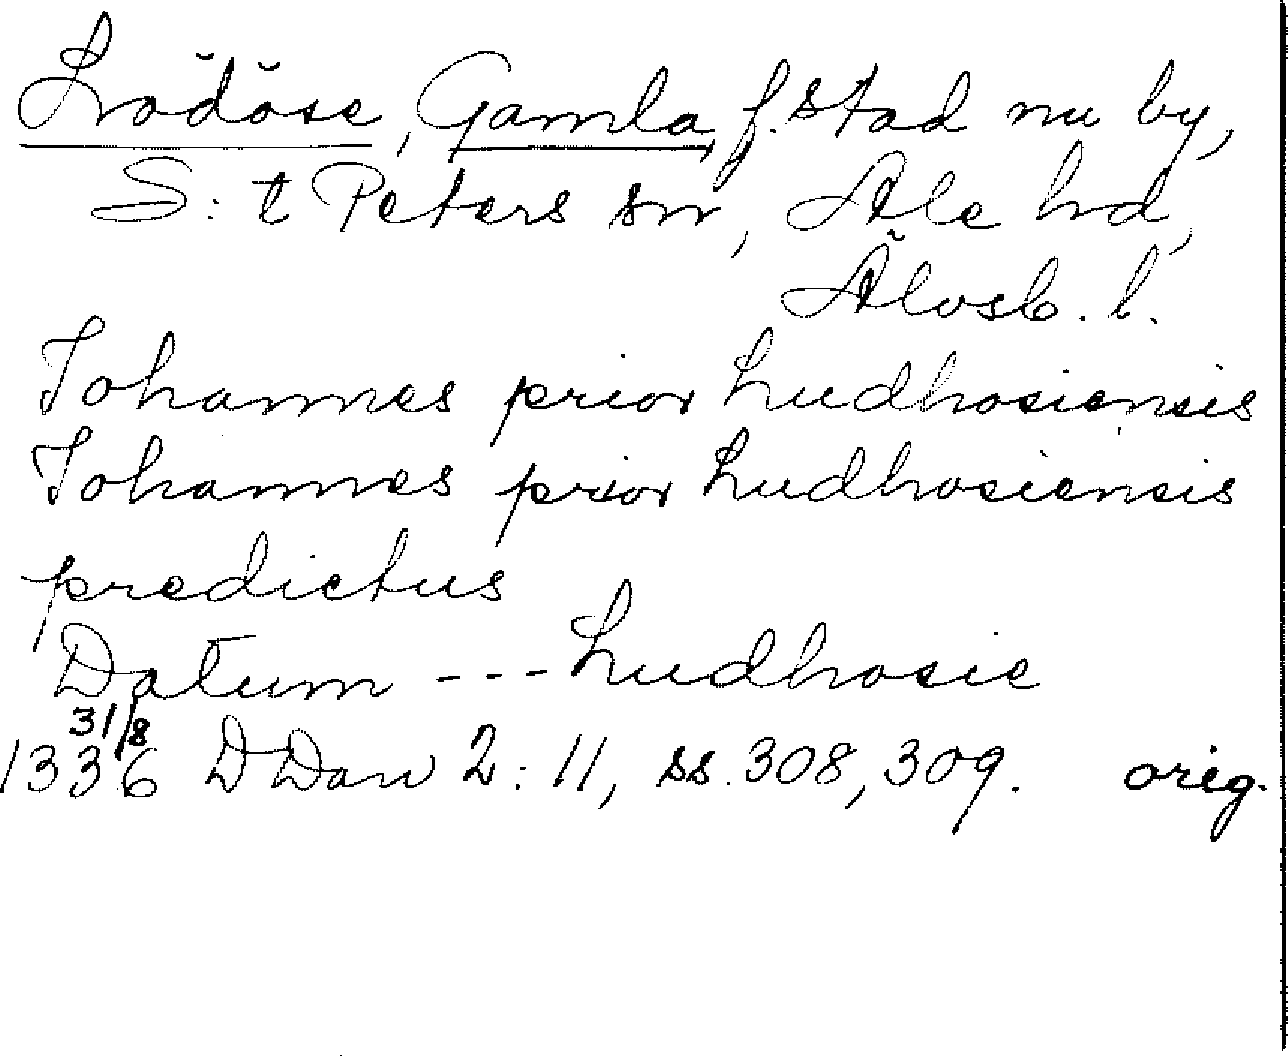 Lödöse, Gamla, f. stad nu by,
S:t Peters sn, Ale hd,
Älvsb. l.
Johannes prior Ludhosiensis
Johannes prior Ludhosiensis
predictus
Datum --- Ludhosie
31/8
1336 DDan 2:11, ss. 308, 309. orig.